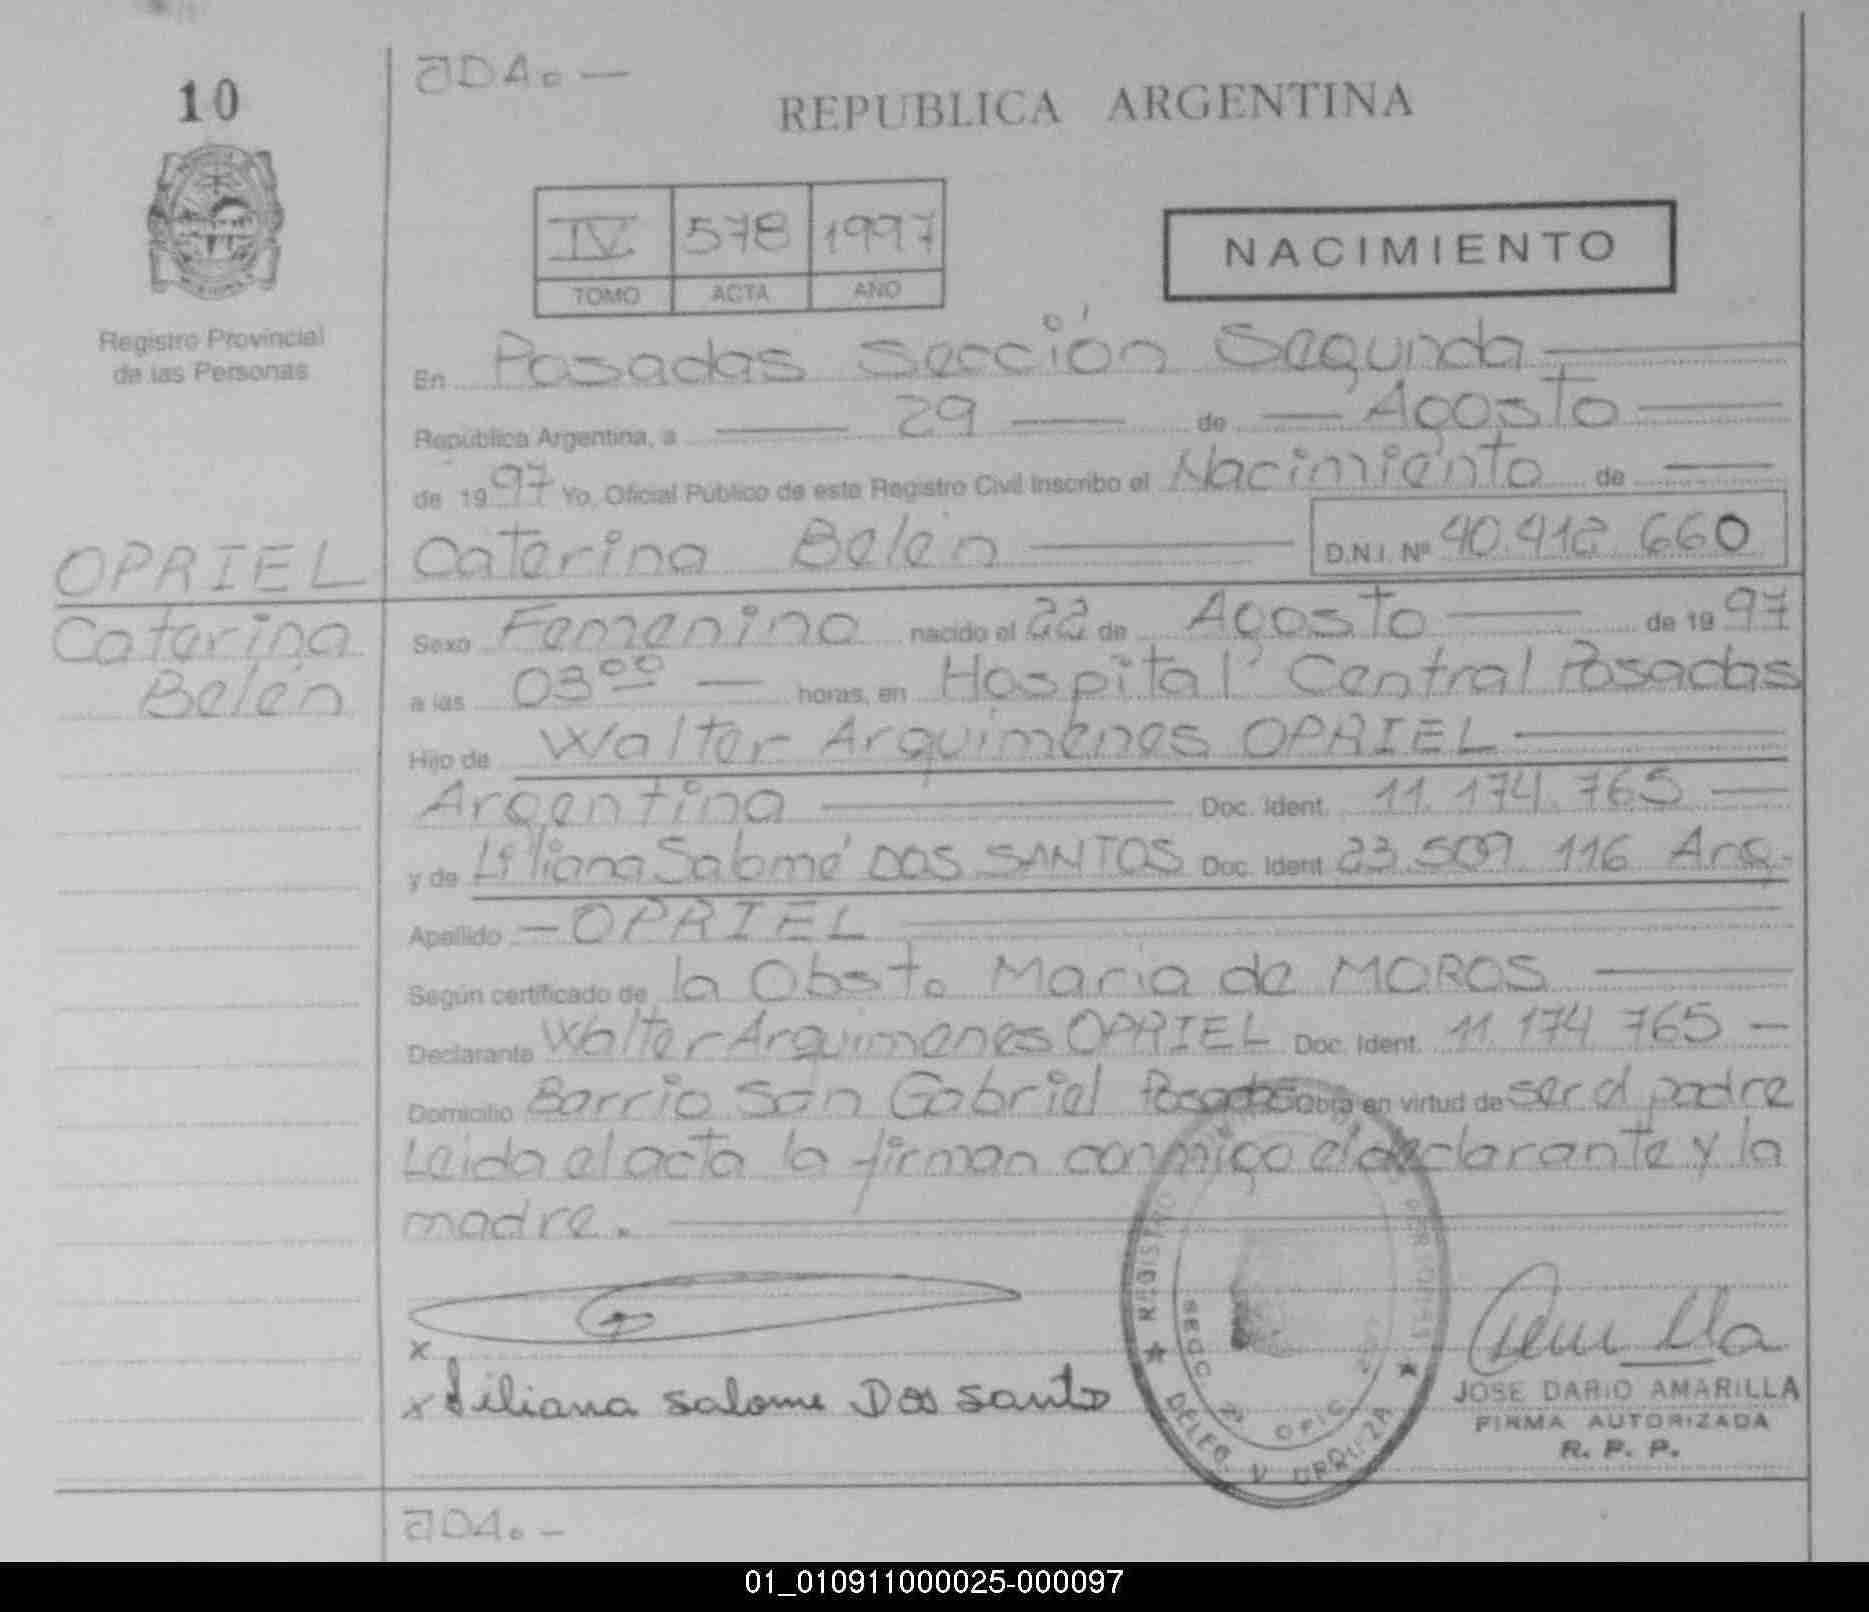 JDA. —
10
REPUBLICA ARGENTINA
IV 578 1997
TOMO ACTA AÑO
NACIMIENTO
Registro Provincial
de las Personas
En Posadas Sección Segunda
República Argentina, a 29 de Agosto
de 1997 Yo, Oficial Público de este Registro Civil Inscribo el Nacimiento de
OPRIEL
Caterina
Belén
Caterina Belén D.N.I. Nº 40.412.660
Sexo Femenino nacido el 22 de Agosto de 1997
a las 03⁰⁰ — horas, en Hospital Central Posadas
Hijo de Walter Arquimenes OPRIEL
Argentina Doc. Ident. 11.174.765 —
y de Liliana Salomé DOS SANTOS Doc. Ident 23.509.116 Arg.
Apellido — OPRIEL
Según certificado de la Obst. Maria de MOROS
Declarante Walter Arquimenes OPRIEL Doc. Ident. 11.174.765 —
Domicilio Barrio San Gabriel Posadas Obra en virtud de ser el padre
Leida el acta la firman conmigo el declarante y la
madre.
x
x Liliana Salome Dos Santos
REGISTRO
SECC 2ª OFIC
DELEG. V URQUIZA
JOSE DARIO AMARILLA
FIRMA AUTORIZADA
R. P. P.
JDA. —
01_010911000025-000097